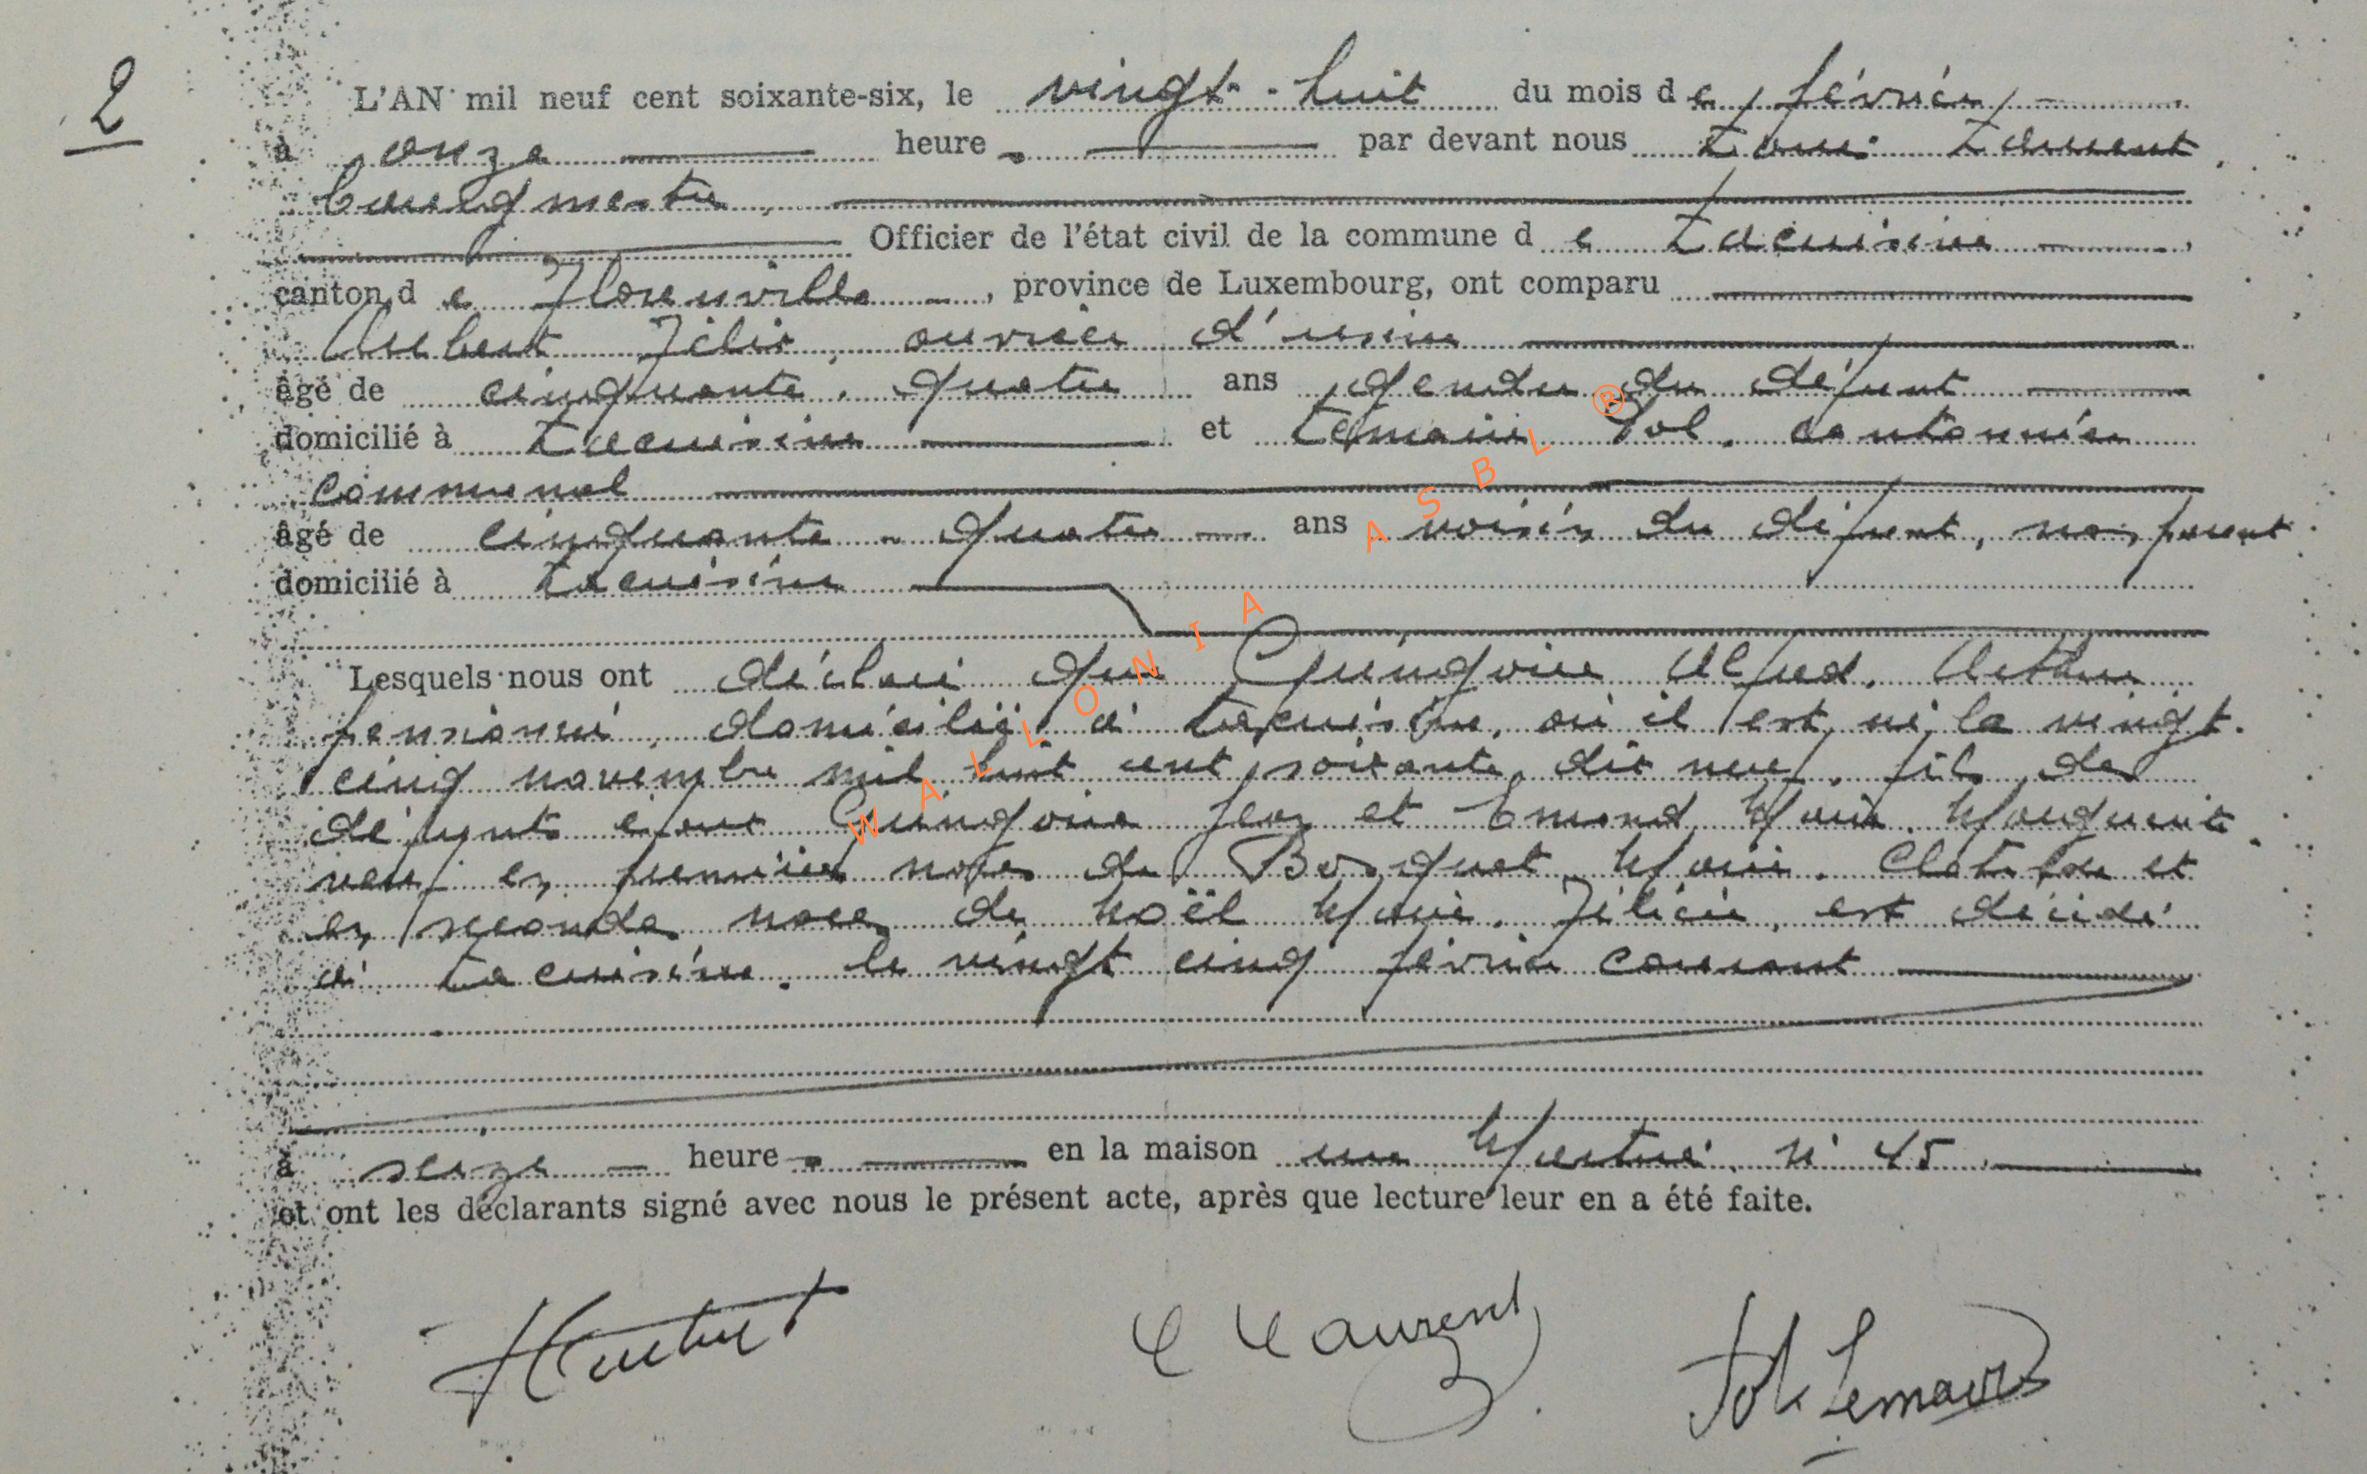 2
L'AN mil neuf cent soixante-six, le vingt-huit du mois de février
à onze heure par devant nous Louis Laurent
bourgmestre,
Officier de l'état civil de la commune de Lacuisine
canton de Florenville, province de Luxembourg, ont comparu
Aubert Félix, ouvrier d'usine
âgé de cinquante-quatre ans, gendre du défunt
domicilié à Lacuisine et Lemaire Pol, cantonnier
communal
âgé de cinquante-quatre ans voisin du défunt, non parent
domicilié à Lacuisine
Lesquels nous ont déclaré que Guingoire Alfred, Arthur
pensionné, domicilié à Lacuisine, où il est né le vingt-
cinq novembre mil huit cent soixante-dix neuf, fils des
défunts époux Guingoire Jean et Emond Marie-Marguerite
veuf en premières noces de Bosquet Marie-Clotilde et
en secondes noces de Noël Marie-Félicie, est décédé
à Lacuisine, le vingt cinq février courant
à seize heure en la maison rue Martué, n° 45
et ont les déclarants signé avec nous le présent acte, après que lecture leur en a été faite.
L Laurent
Pol Lemaire
WALLONIA ASBL ®